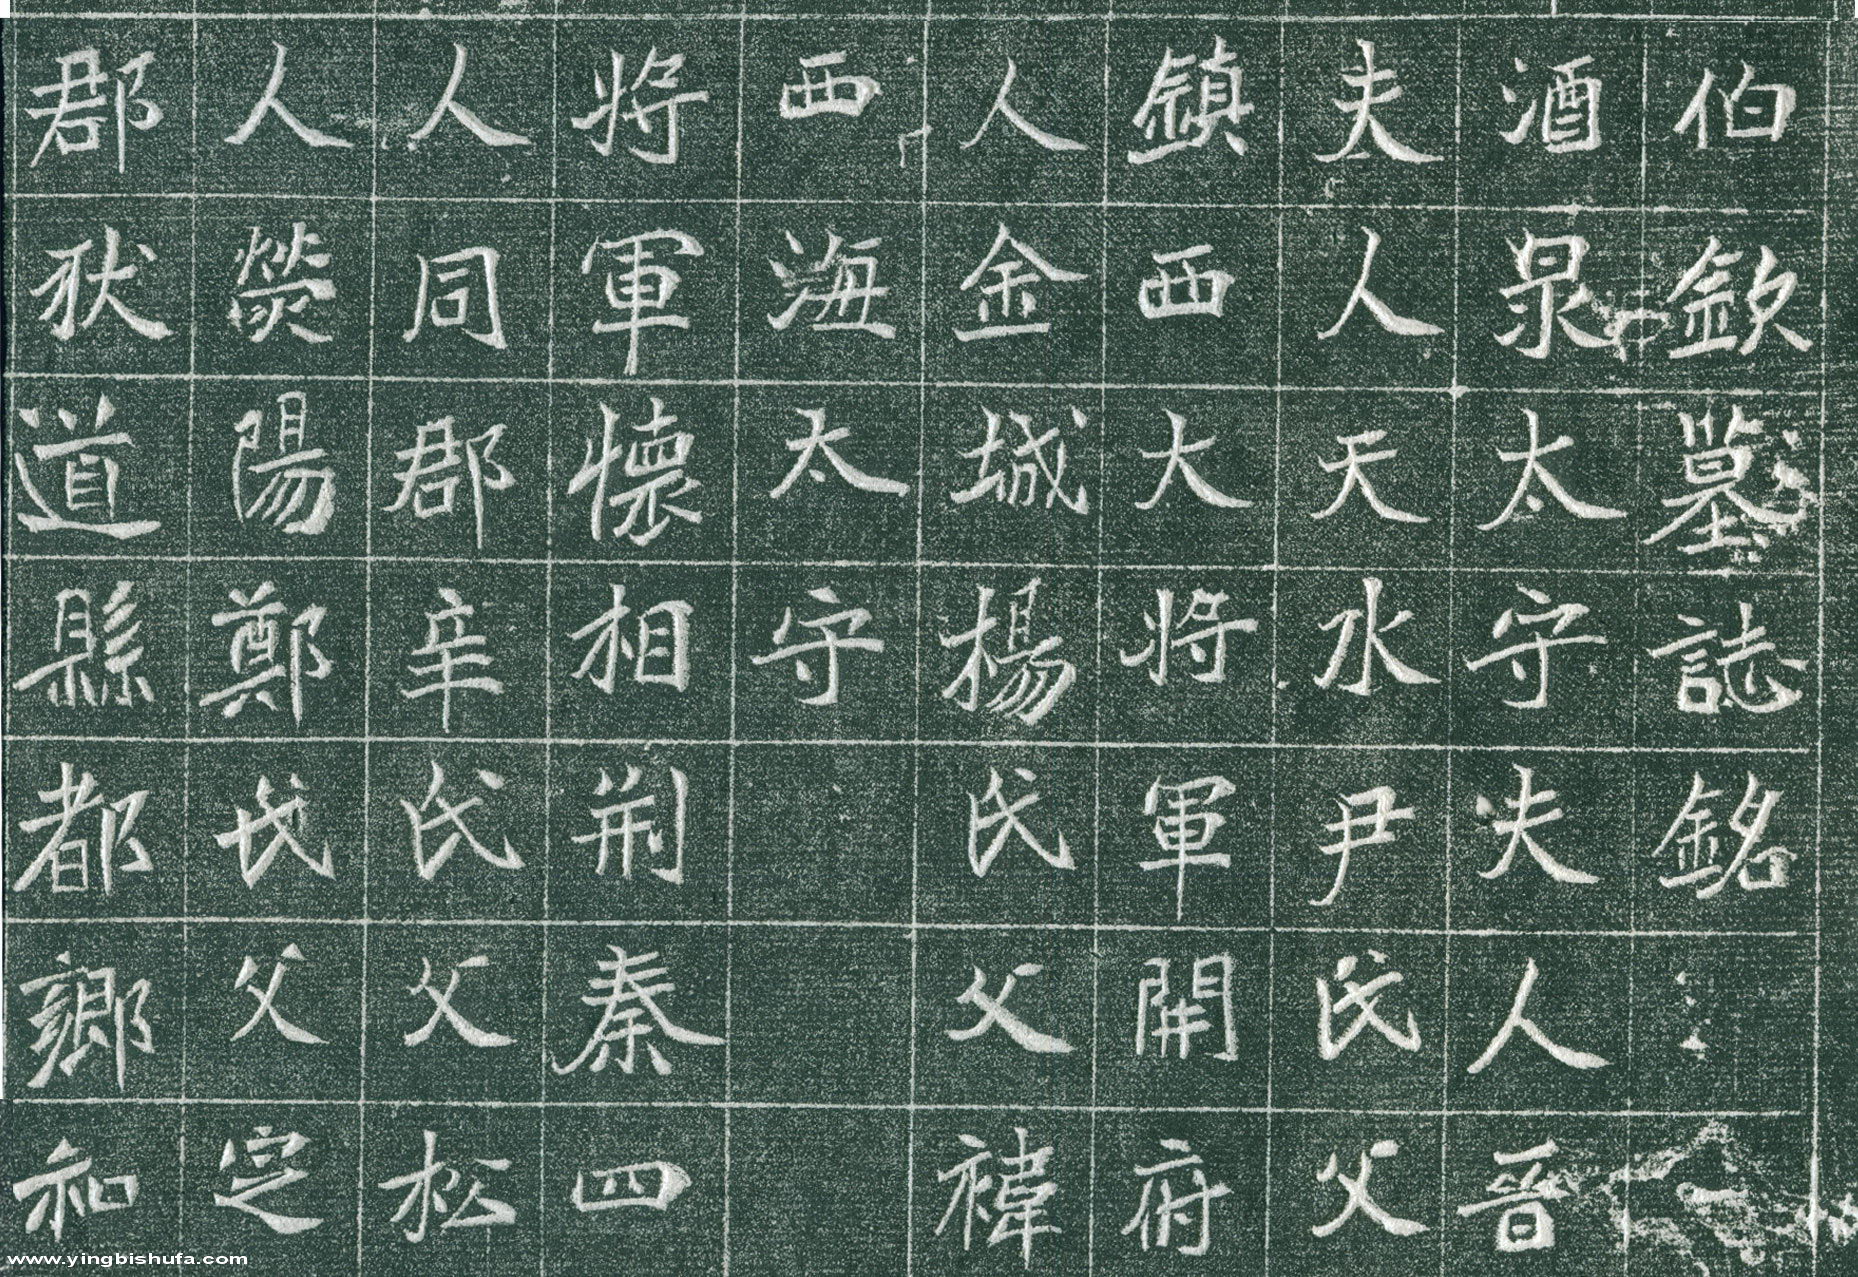 伯欽墓誌銘
酒泉太守夫人晉
夫人天水尹氏父
鎮西大將軍開府
人金城楊氏父禕
西海太守
將軍懷相荊秦四
人同郡辛氏父松
人熒陽鄭氏父定
郡狄道縣都鄉和
www.yingbishufa.com